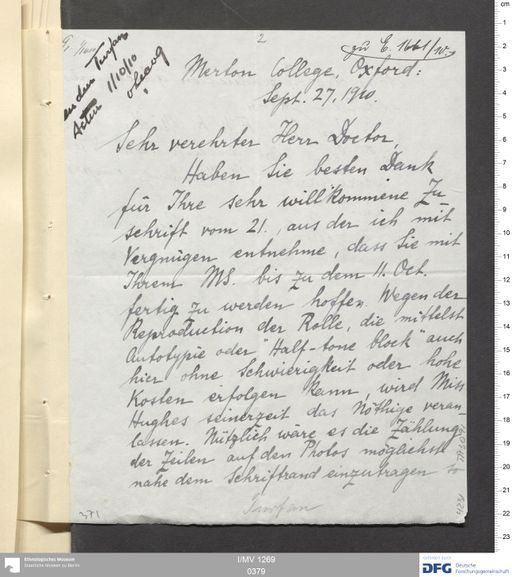 2
zu E. 1661/10.
zu den Turfan
Acten 1/10/10
Merton College, Oxford:
Sept. 27, 1910.
Sehr verehrter Herr Doctor,
Haben Sie besten Dank
für Ihre sehr willkommene Zu-
schrift vom 21., aus der ich mit
Vergnügen entnehme, dass Sie mit
Ihrem MS. bis zu dem 11. Oct.
fertig zu werden hoffen. Wegen der
Reproduction der Rolle, die mittelst
Autotypie oder "Half-tone block" auch
hier ohne Schwierigkeit oder hohe
Kosten erfolgen kann, wird Miss
Hughes seinerzeit das Nöthige veran-
lassen. Nützlich wäre es die Zählung
der Zeilen auf den Photos möglichst
nahe dem Schriftrand einzutragen so
Turfan
371
Ethnologisches Museum
Staatliche Museen zu Berlin
I/MV 1269
0379
gefördert durch
DFG Deutsche
Forschungsgemeinschaft
cm
1
2
3
4
5
6
7
8
9
10
11
12
13
14
15
16
17
18
19
20
21
22
23